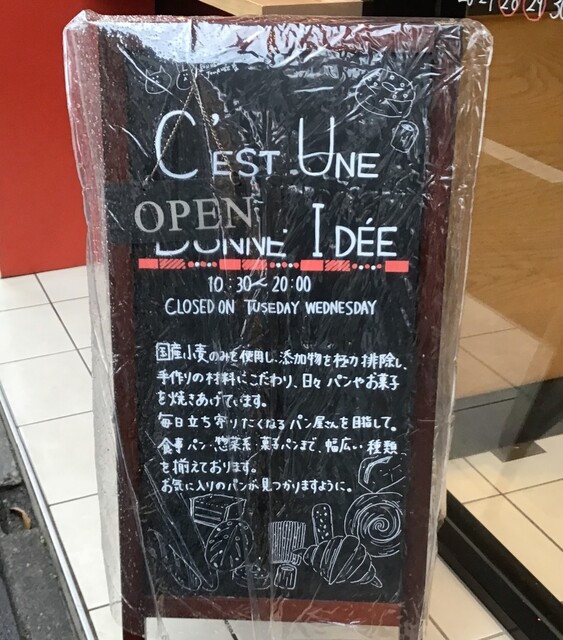 28 29 30
C'EST UNE
OPEN
BONNE IDÉE
10:30〜20:00
CLOSED ON TUSEDAY WEDNESDAY
国産小麦のみを使用し、添加物を極力排除し、
手作りの材料にこだわり、日々パンやお菓子
を焼きあげています。
毎日立ち寄りたくなるパン屋さんを目指して。
食事パン・惣菜系・菓子パンまで、幅広い種類
を揃えております。
お気に入りのパンが見つかりますように。